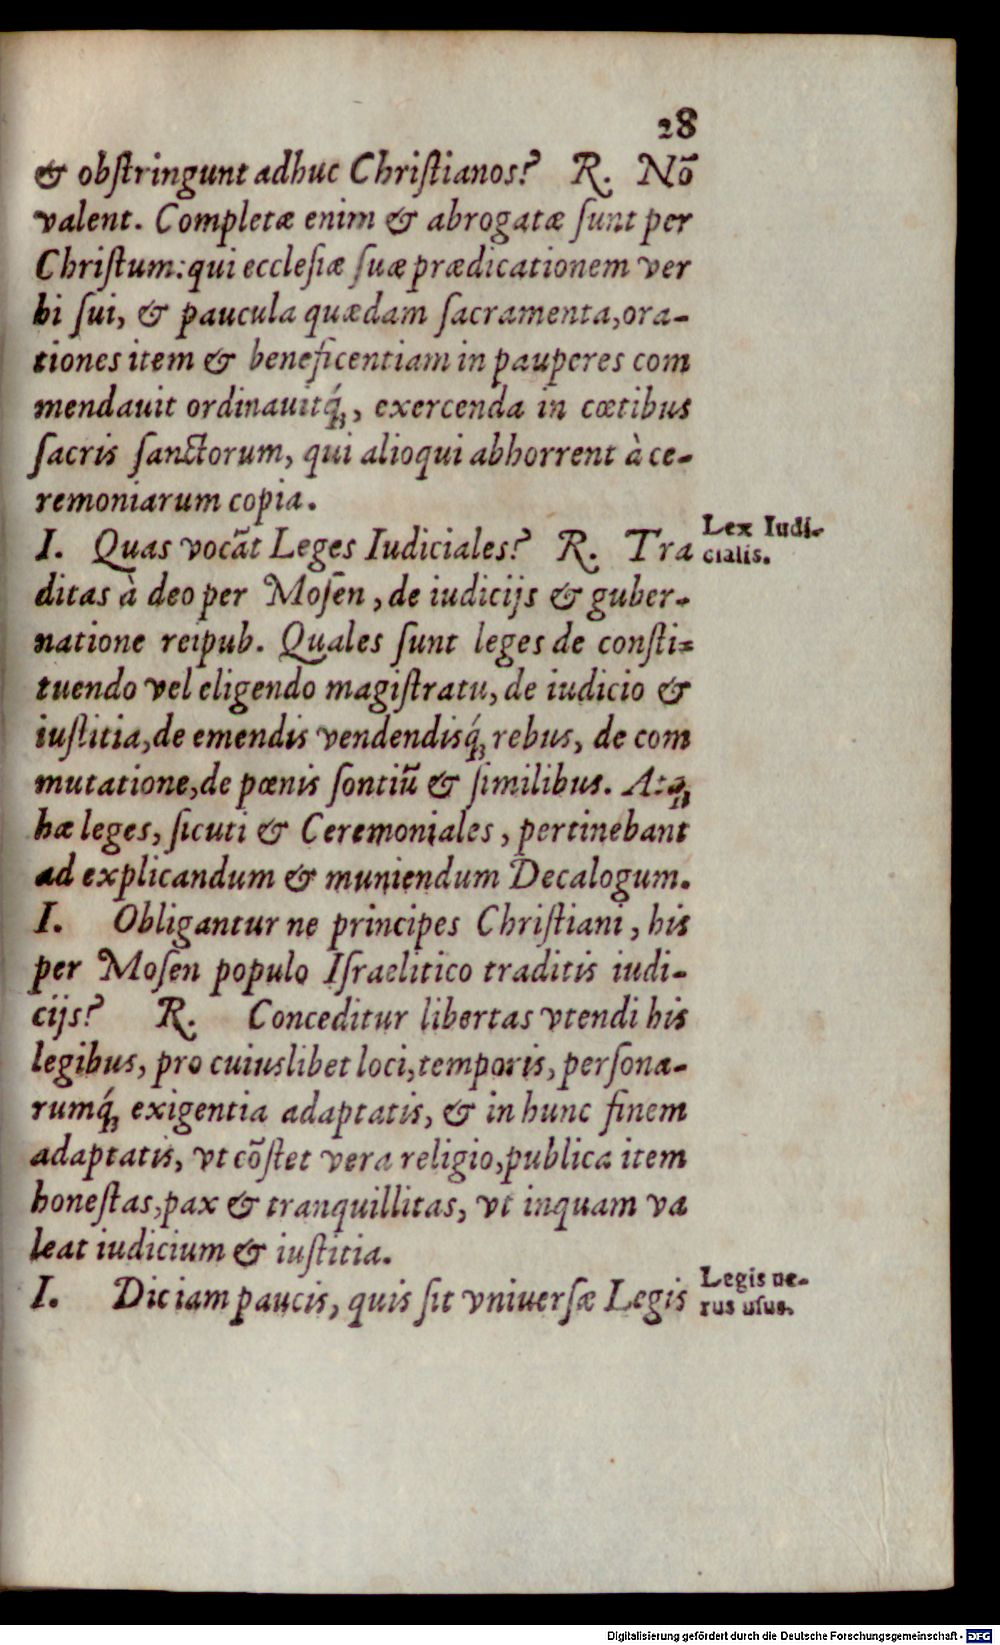 28
& obſtringunt adhuc Chriſtianos? R. Nõ
valent. Completæ enim & abrogatæ ſunt per
Chriſtum: qui eccleſiæ ſuæ prædicationem ver
bi ſui, & paucula quædam ſacramenta, ora-
tiones item & beneficentiam in pauperes com
mendauit ordinauitq́;, exercenda in cœtibus
ſacris ſanctorum, qui alioqui abhorrent à ce-
remoniarum copia.
I. Quas vocãt Leges Iudiciales? R. Tra
Lex Iudi-
cialis.
ditas à deo per Moſen, de iudicijs & guber-
natione reipub. Quales ſunt leges de conſti-
tuendo vel eligendo magiſtratu, de iudicio &
iuſtitia, de emendis vendendisq́; rebus, de com
mutatione, de pœnis ſontiũ & ſimilibus. Atq;
hæ leges, ſicuti & Ceremoniales, pertinebant
ad explicandum & muniendum Decalogum.
I. Obligantur ne principes Chriſtiani, his
per Moſen populo Iſraelitico traditis iudi-
cijs? R. Conceditur libertas vtendi his
legibus, pro cuiuslibet loci, temporis, perſona-
rumq́; exigentia adaptatis, & in hunc finem
adaptatis, vt cõſtet vera religio, publica item
honeſtas, pax & tranquillitas, vt inquam va
leat iudicium & iuſtitia.
I. Dic iam paucis, quis ſit vniuerſæ Legis
Legis ue-
rus uſus.
Digitalisierung gefördert durch die Deutsche Forschungsgemeinschaft - DFG